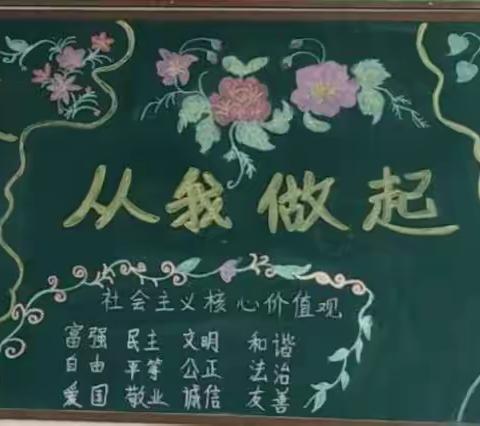 从我做起
社会主义核心价值观
富强 民主 文明 和谐
自由 平等 公正 法治
爱国 敬业 诚信 友善